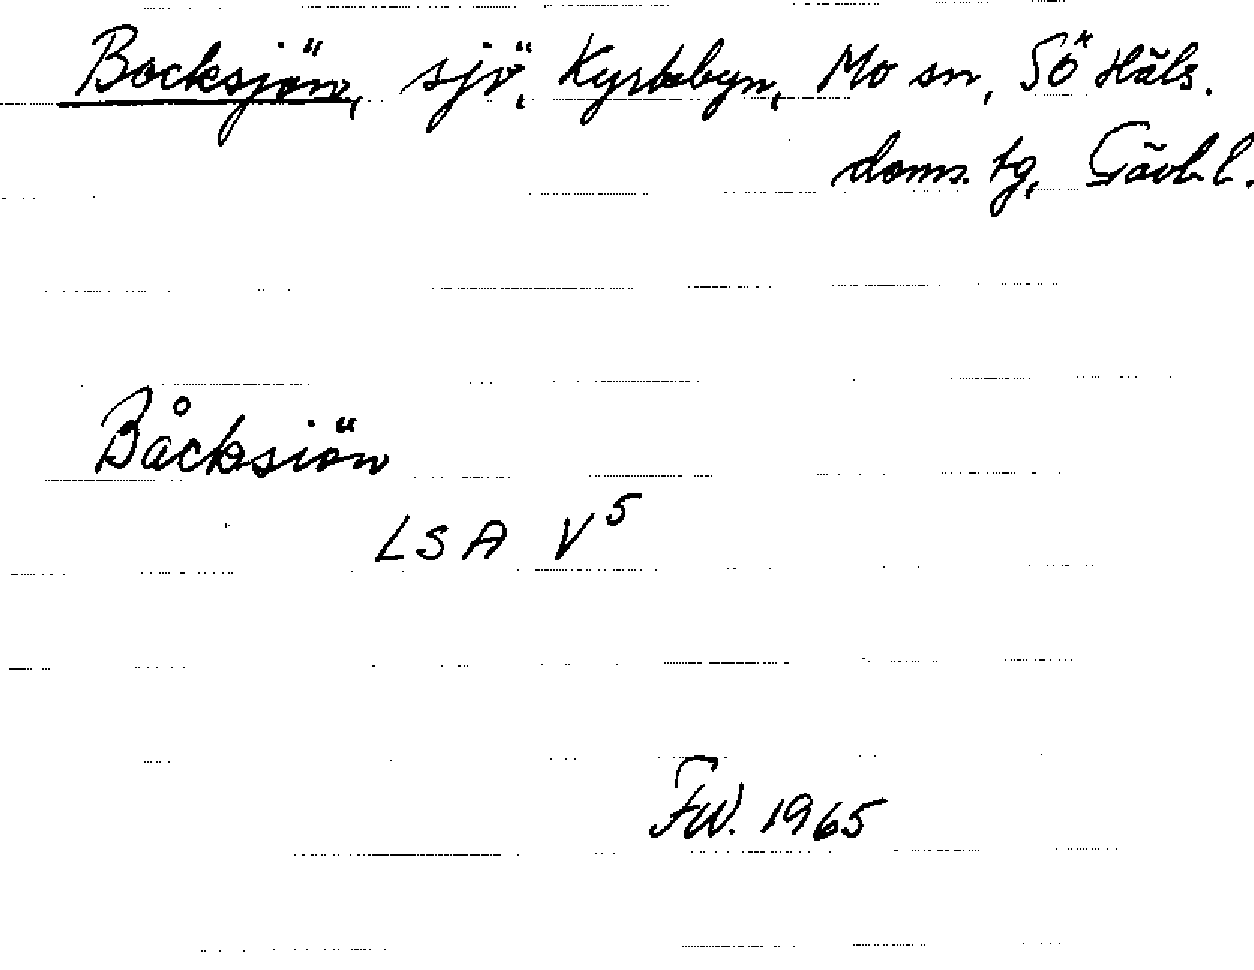 Bocksjön, sjö, Kyrkbyn, Mo sn, Sö Häls.
doms. tg, Gävl. l.
Båcksiön
LSA V5
FW. 1965